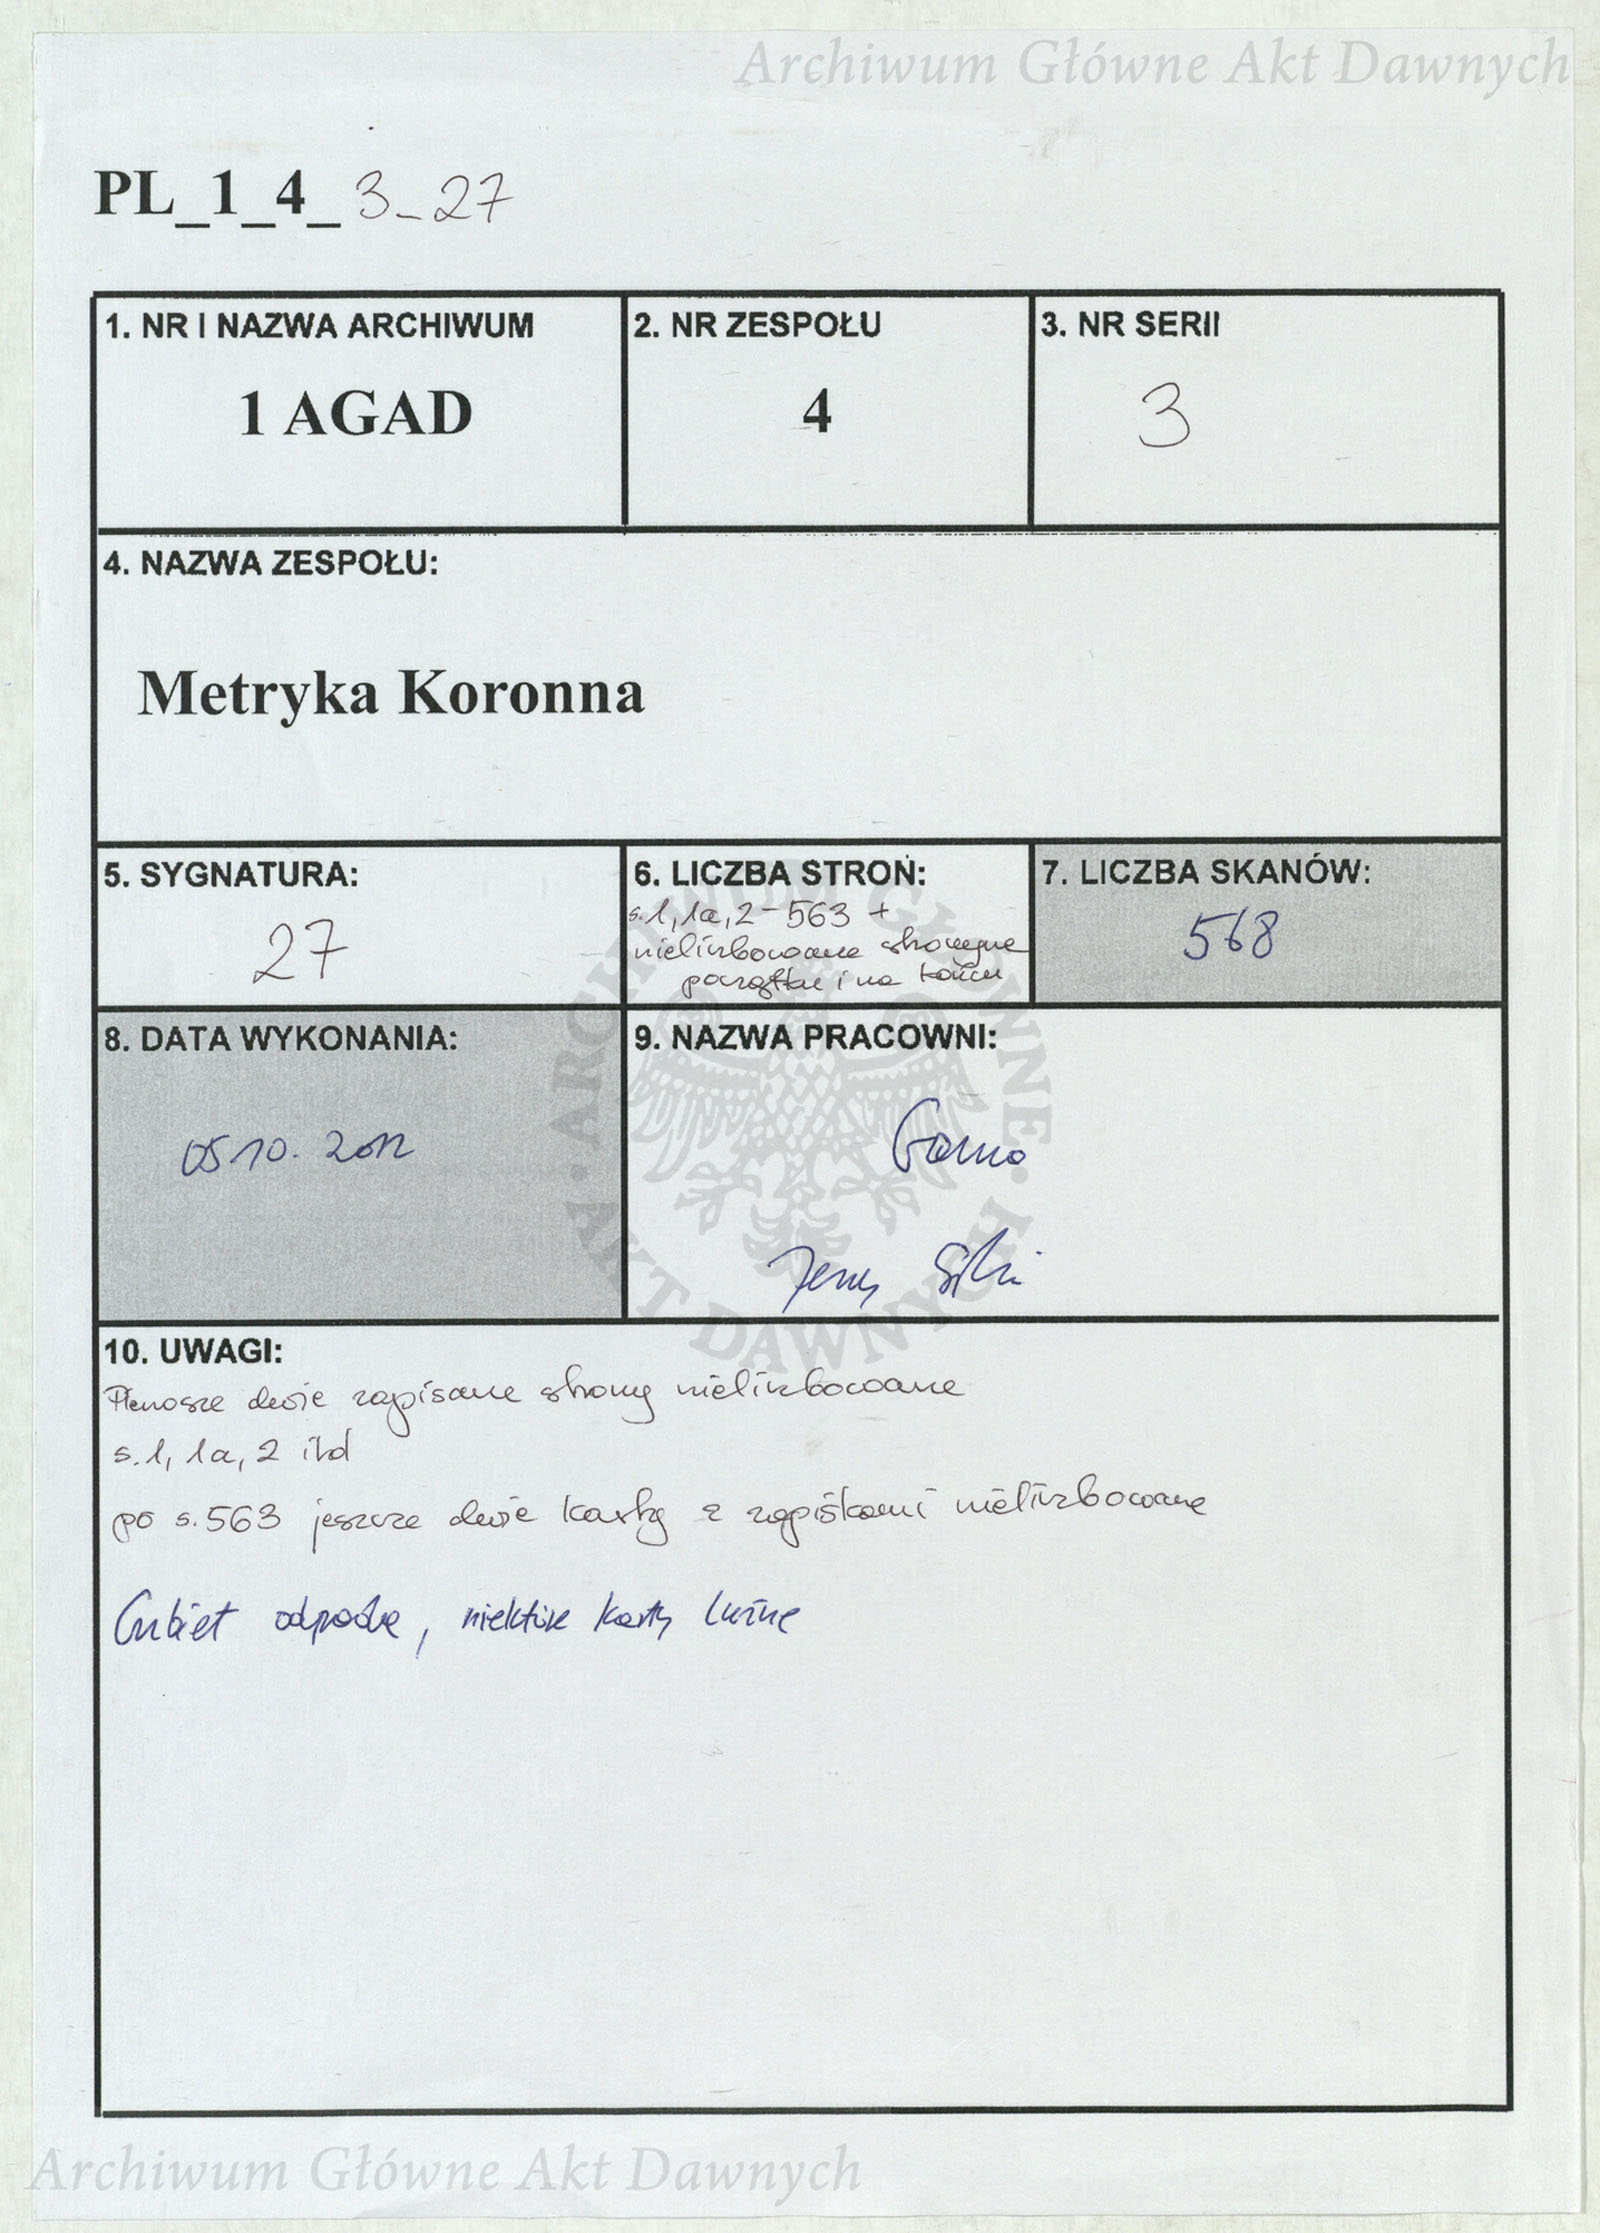 Archiwum Główne Akt Dawnych
PL_1_4_3_27
1. NR I NAZWA ARCHIWUM
1 AGAD
2. NR ZESPOŁU
4
3. NR SERII
3
4. NAZWA ZESPOŁU:
Metryka Koronna
5. SYGNATURA:
27
6. LICZBA STRON:
s. 1, 1a, 2-563 +
nieliczbowane strony na
początku i na końcu
7. LICZBA SKANÓW:
568
8. DATA WYKONANIA:
05 10. 2012
9. NAZWA PRACOWNI:
Jerzy
10. UWAGI:
Pierwsze dwie zapisane strony nieliczbowane
s. 1, 1a, 2 itd
po s. 563 jeszcze dwie karty z zapiskami nieliczbowane
Grzbiet odpada, niektóre karty luźne
ARCHIWUM GŁÓWNE · AKT DAWNYCH ·
Archiwum Główne Akt Dawnych